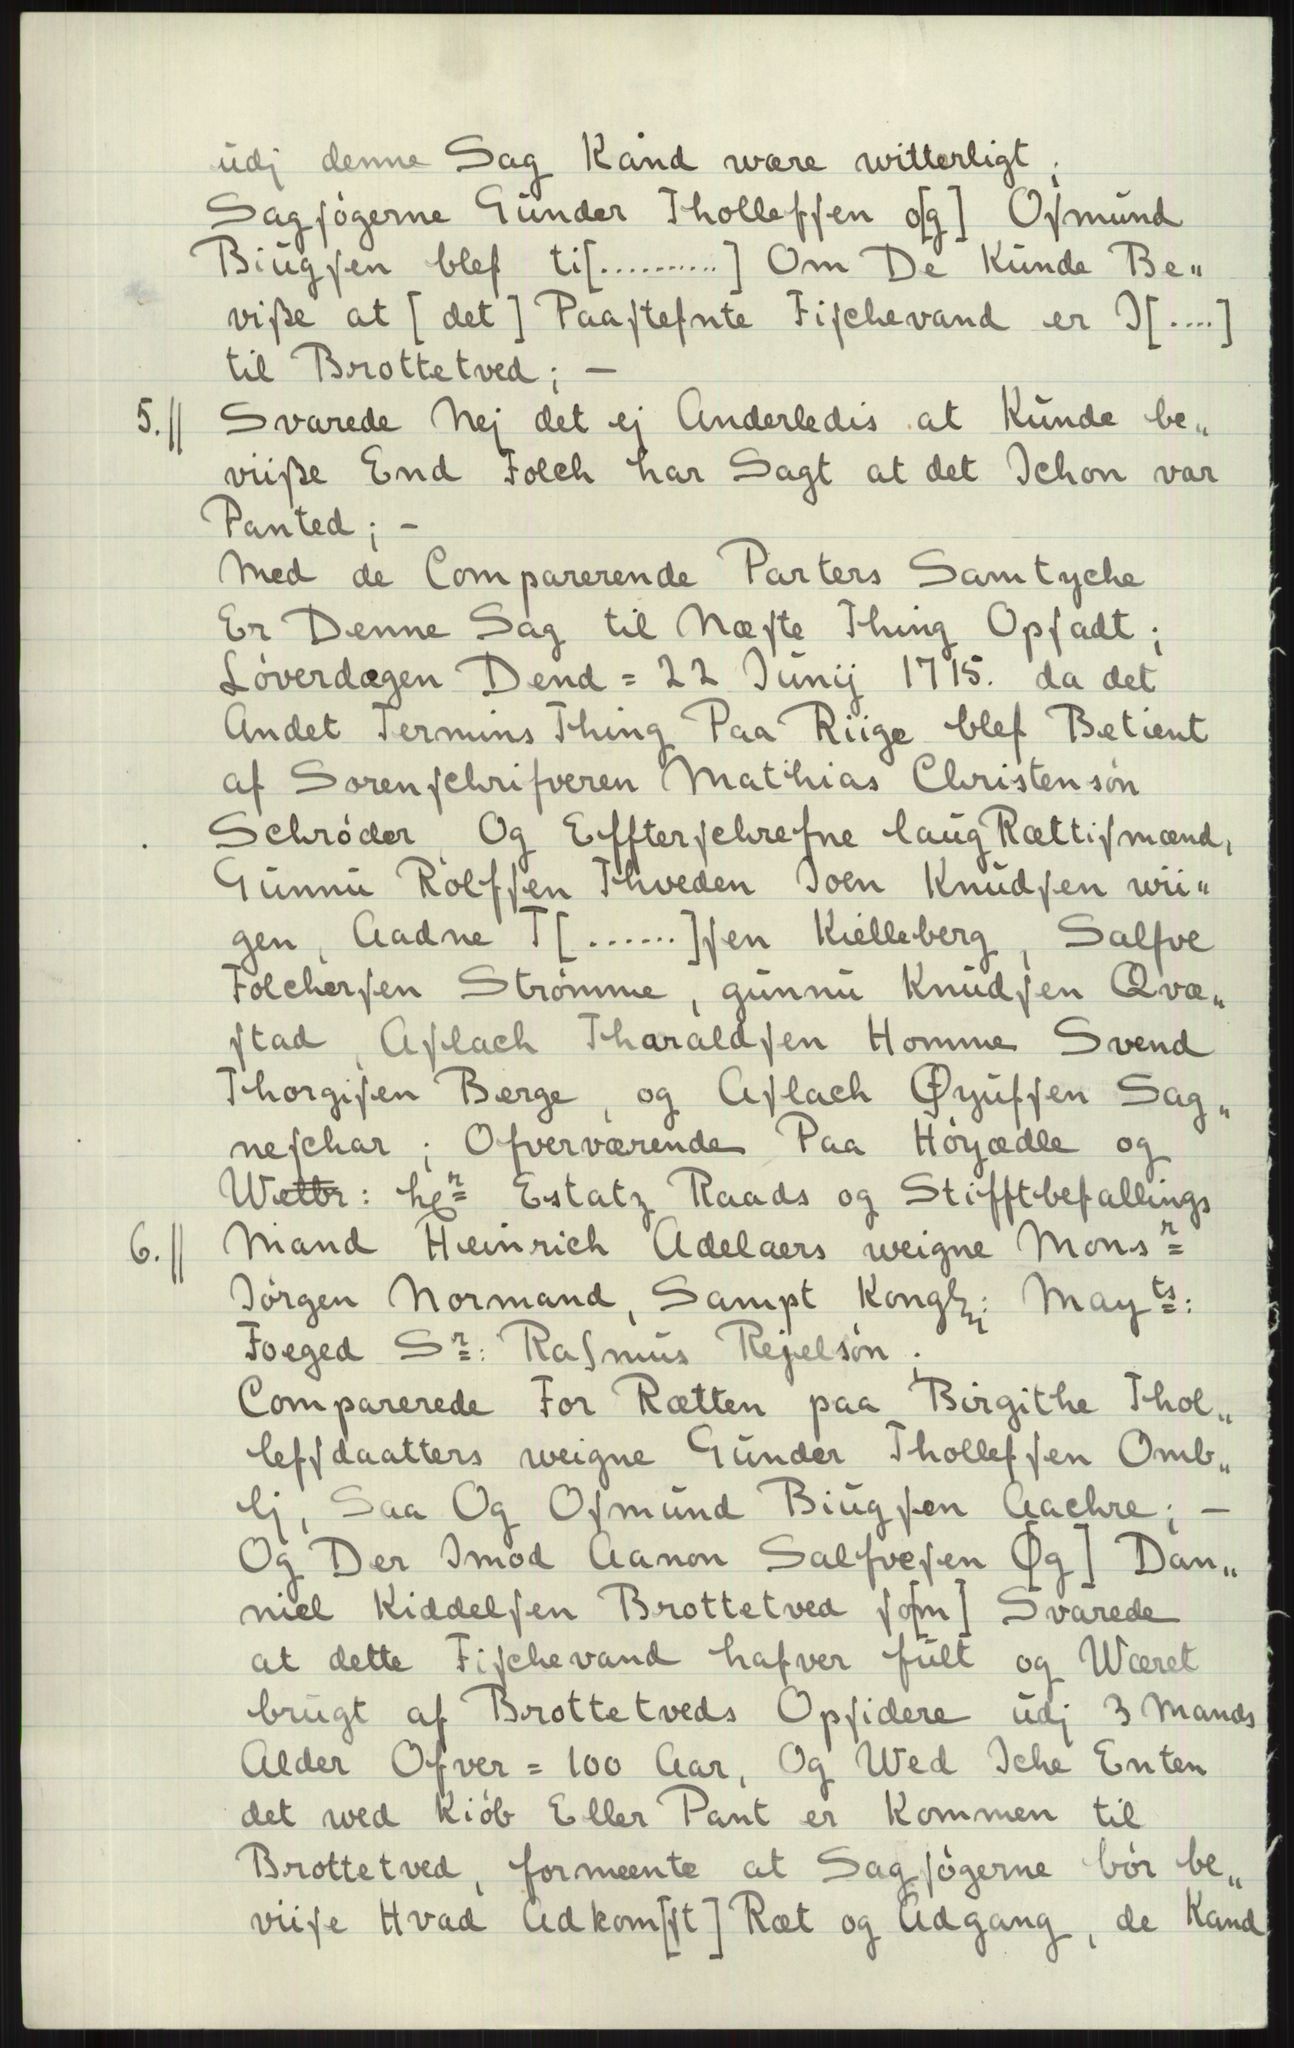 udj denne Sag Kand wære witterligt;
Sagſøgerne Gunder Thollefſen o[g] Oſmund
Biugſen blef ti[..........] Om De Kunde Be„
viße at [det] Paaſtefnte Fiſchevand er I[....]
til Brottetved; –
5.// Svarede Nej det ej Anderledis at Kunde be„
viiße End Folch har Sagt at det Ichon var
Panted; –
Med de Comparerende Parters Samtyche
Er Denne Sag til Næſte Thing Opſadt;
Løverdagen Dend = 22 Junij 1715. da det
Andet Termins Thing Paa Riige blef Betient
af Sorenſchrifveren Mathias Christensøn
Schrøder, Og Effterſchrefne laugRættiſmænd,
Gunnu Rolfſen Thveden Joen Knudſen wii„
gen, Aadne T[......]ſen Kielleberg, Salfve
Folcherſen Strømme, gunnu Knudſen Qvæ„
ſtad, Aſlach Tharaldſen Homme Svend
Thorgiſen Berge, og Aſlach Øyufſen Sag„
neſchar; Ofverværende Paa Høyædle og
Welbr: hr Estatz Raads og Stifftbefallings
6.// Mand Heinrich Adelaers weigne Monsr
Jørgen Normand, Sampt Kongl: Mayts:
Foeged Sr: Raſmus Rejelsøn.
Comparerede For Rætten paa Birgithe Thol„
lefſdaatters weigne Gunder Thollefſen Omb„
lj, Saa Og Oſmund Biugſen Aachre; –
Og Der Imod Aanon Salfveſen O[g] Dan„
niel Kiddelſen Brottetved ſo[m] Svarede
at dette Fiſchevand hafver fult og Wæret
brugt af Brottetveds Opſidere udj 3 Mands
Alder Ofver = 100 Aar, Og Wed Iche Enten
det wed Kiøb Eller Pant er Kommen til
Brottetved, formeente at Sagſøgerne bør be„
viiſe Hvad Adkom[ſt] Ræt og Adgang, de Kand